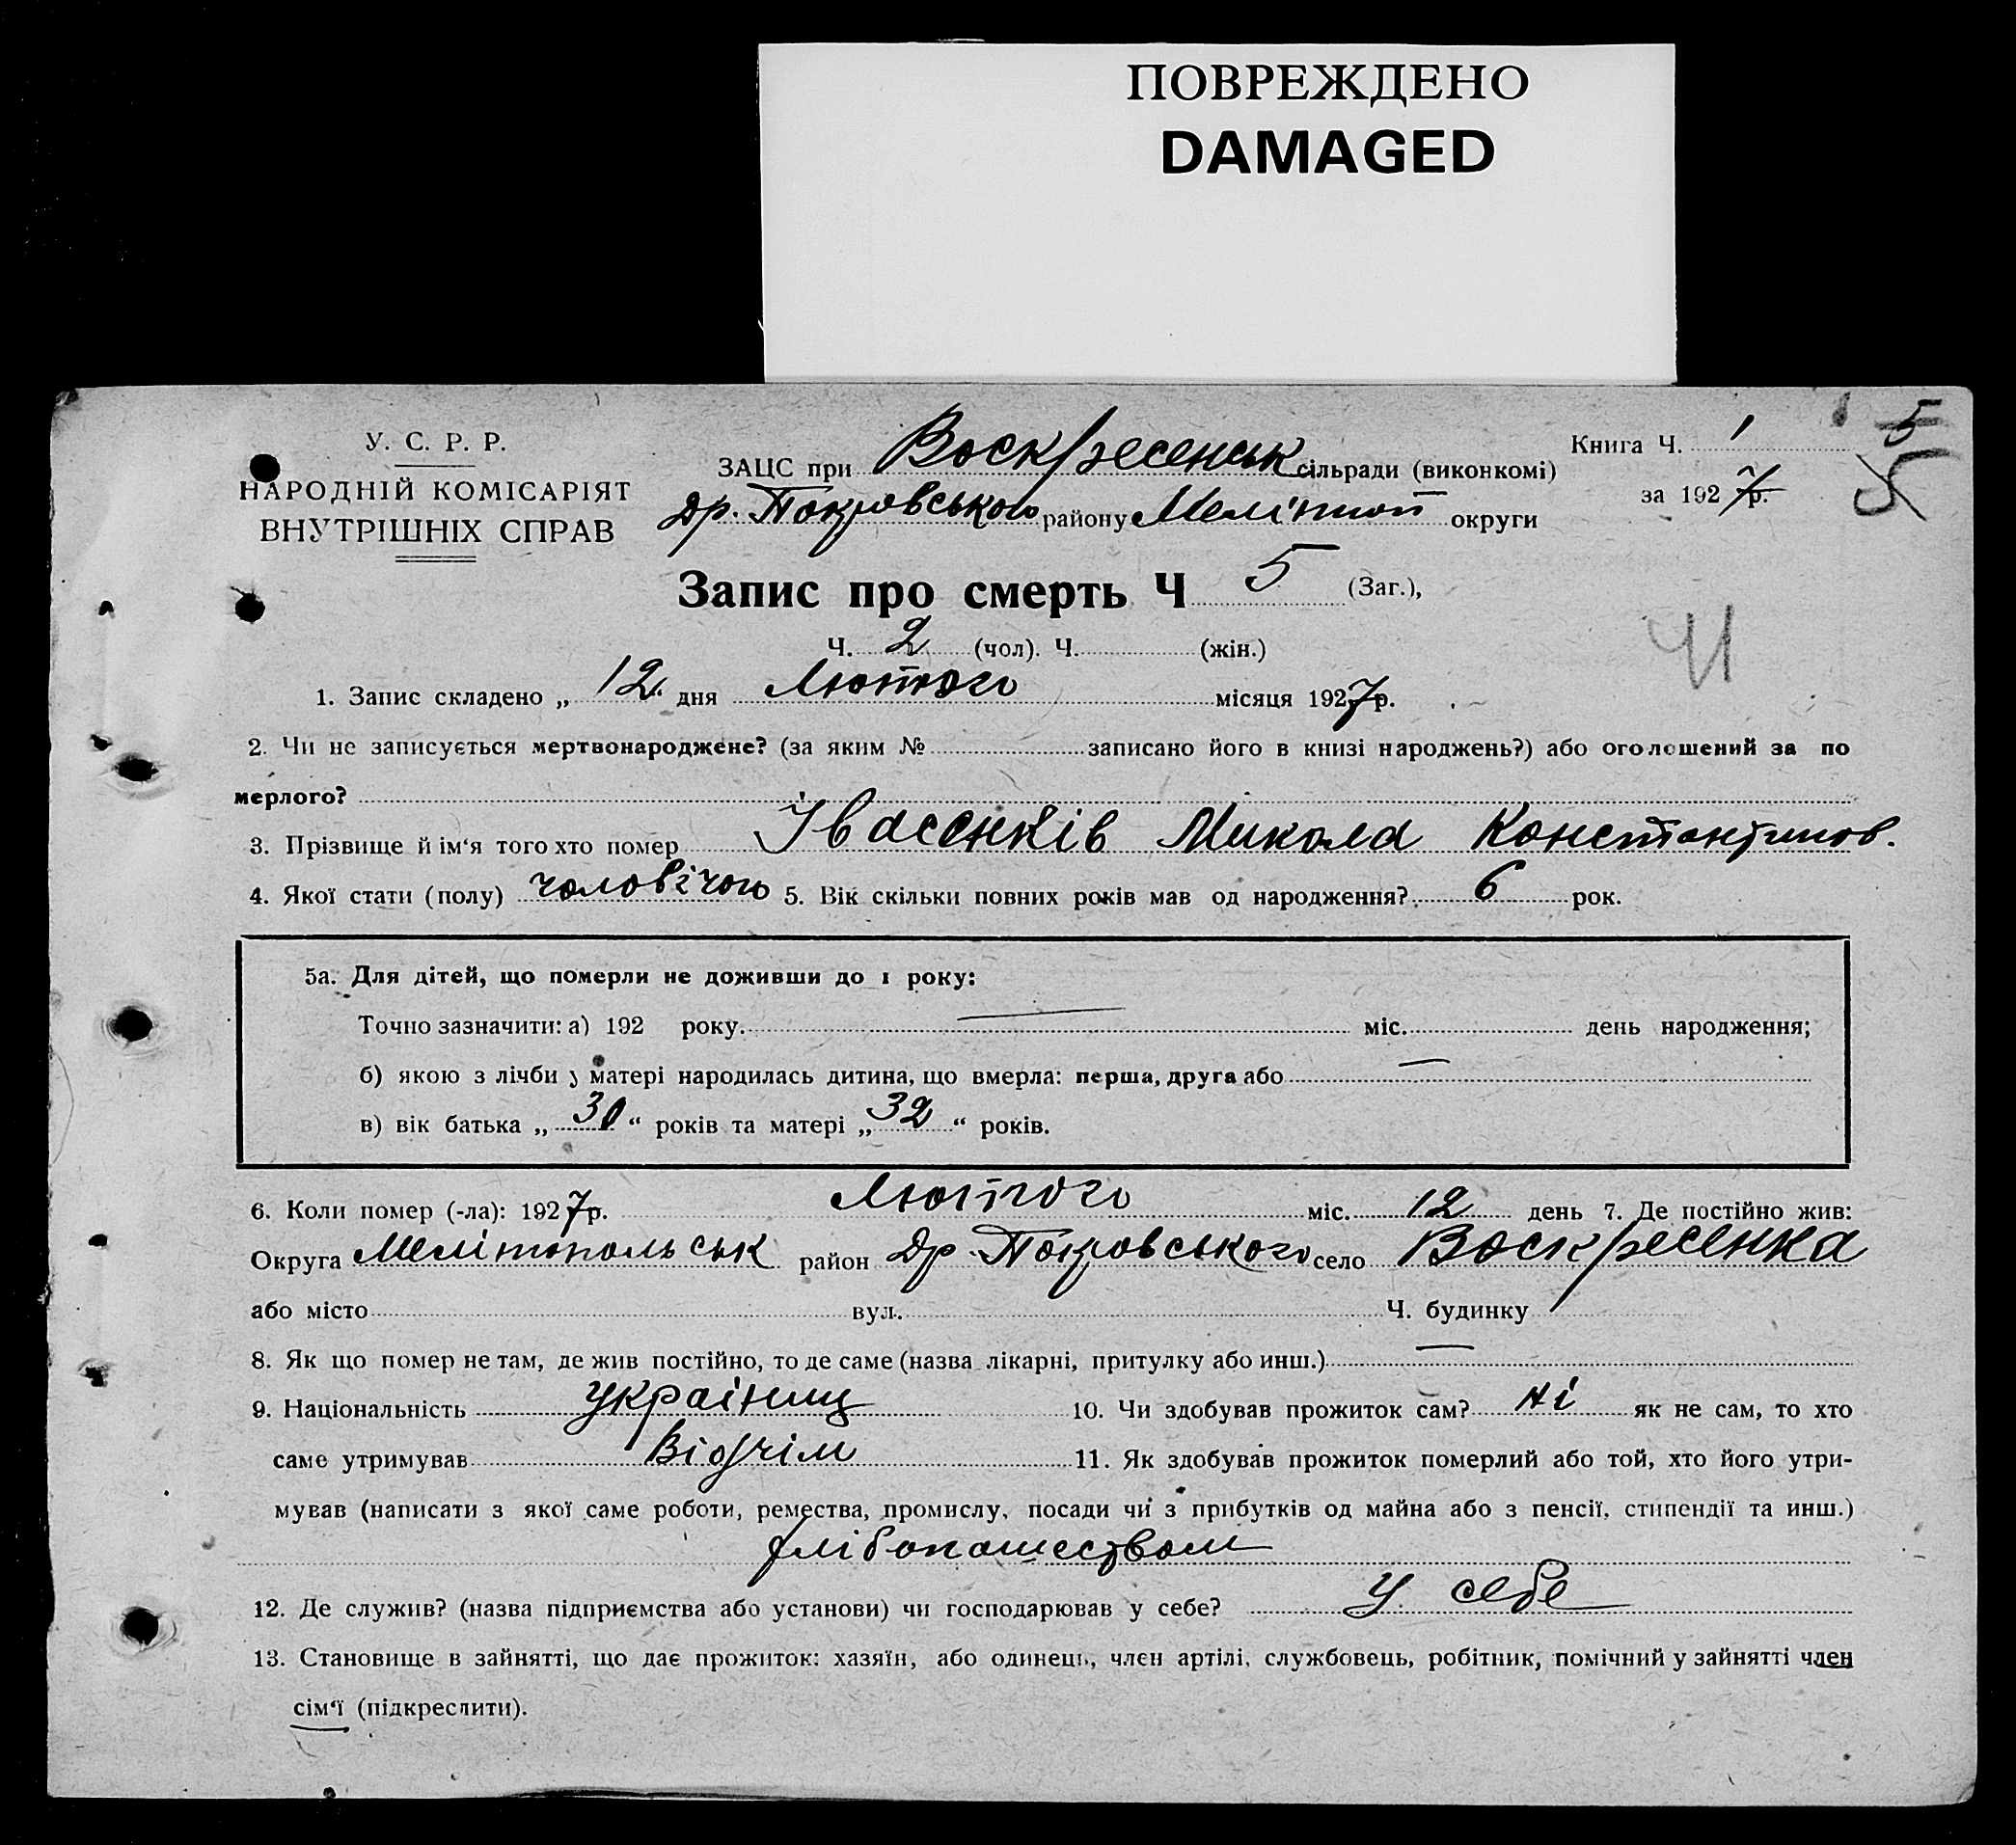 ПОВРЕЖДЕНО
DAMAGED
У. С. Р. Р.
НАРОДНІЙ КОМІСАРІЯТ
ВНУТРІШНІХ СПРАВ
ЗАЦС при Воскресенськ сільради (виконкомі)
Др. Покровського району Меліттоп округи
Книга Ч. 1
за 1927 р.
5
5
Запис про смерть Ч 5 (Заг.),
Ч. 2 (чол). Ч. (жін.)
Ч
1. Запис складено „ 12 дня Лютого місяця 1927 р.
2. Чи не записується мертвонароджене? (за яким № записано його в книзі народжень?) або оголошений за по
мерлого?
3. Прізвище й ім‘я того хто помер Івасенків Микола Константинов.
4. Якої стати (полу) чоловічого 5. Вік скільки повних років мав од народження? 6 рок.
5а. Для дітей, що померли не доживши до 1 року:
Точно зазначити: а) 192 року. — міс. день народження;
б) якою з лічби у матері народилась дитина, що вмерла: перша, друга або —
в) вік батька „ 30 “ років та матері „ 32 “ років.
6. Коли помер (-ла): 1927 р. Лютого міс. 12 день 7. Де постійно жив:
Округа Мелітопольськ район Др. Покровського село Воскресенка
або місто вул. Ч. будинку
8. Як що помер не там, де жив постійно, то де саме (назва лікарні, притулку або инш.) —
9. Національність українец 10. Чи здобував прожиток сам? ні як не сам, то хто
саме утримував Відчім 11. Як здобував прожиток померлий або той, хто його утри-
мував (написати з якої саме роботи, ремества, промислу, посади чи з прибутків од майна або з пенсії, стипендії та инш.)
хлібопашеством
12. Де служив? (назва підприємства або установи) чи господарював у себе? у себе
13. Становище в зайнятті, що дає прожиток: хазяїн, або одинець, член артілі, службовець, робітник, помічний у зайнятті член
сім‘ї (підкреслити).